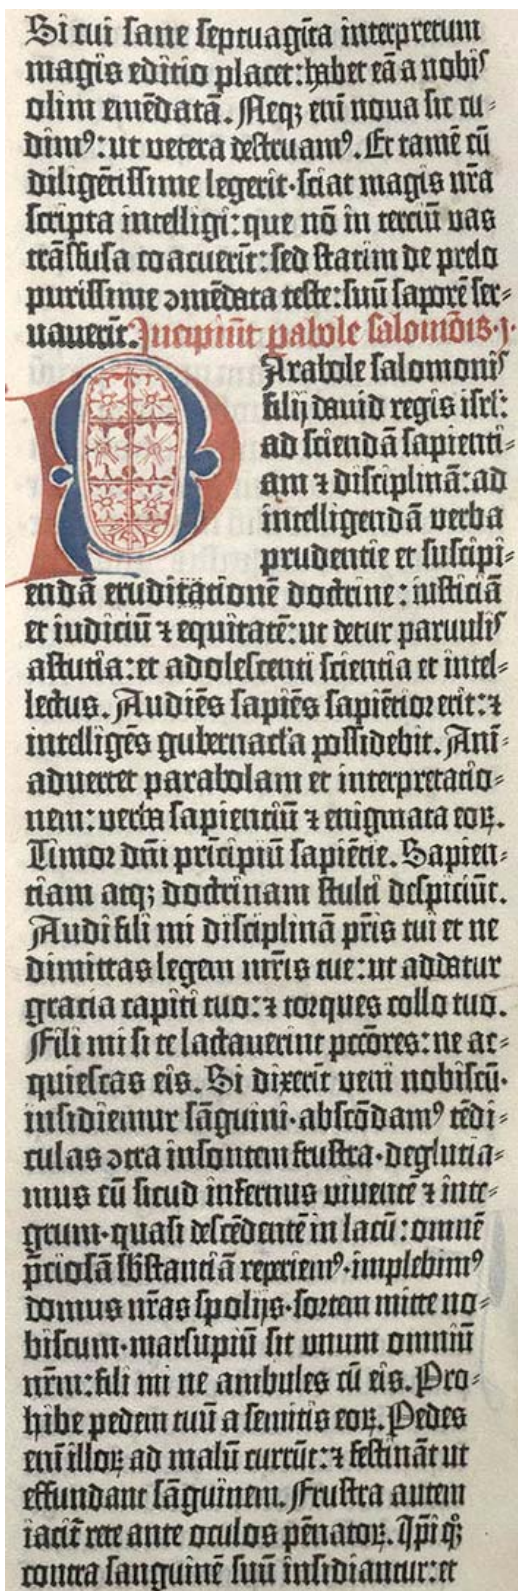 Si cui sane septuagīta interpretum
magis editio placet: habet eā a nobiſ
olim emēdatā. Neqȝ enī noua sic cu⸗
dimꝰ: ut vetera destruamꝰ. Et tamē cū
diligētissime legerit·sciat magis nr̄a
scripta intelligi: que nō in terciū vas
trāsfusa coacuerīt: sed statim de prelo
purissime ↄmēdata teste: suū saporē ser⸗
uauerīt. Incipiūt pabole salomōis·
Arabole salomoniſ
filij dauid regis isrl̄:
ad sciendā sapienti⸗
am ⁊ disciplinā: ad
intelligendā verba
prudentie et suscipi⸗
endā eruditacionē doctrine: iusticiā
et iudiciū ⁊ equitatē: ut detur paruuliſ
astutia: et adolescenti scientia et intel⸗
lectus. Audiēs sapiēs sapiētior erit: ⁊
intelligēs gubernacl̄a possidebit. Anī⸗
aduertet parabolam et interpretatio⸗
nem: verba sapientiū ⁊ enigmata eoꝝ.
Timor dn̄i prīcipiū sapiētie. Sapien⸗
tiam atqȝ doctrinam stulti despiciūt.
Audi fili mi disciplinā pr̄is tui et ne
dimittas legem mr̄is tue: ut addatur
gracia capiti tuo: ⁊ torques collo tuo.
Fili mi si te lactauerint pctōres: ne ac⸗
quiescas eis. Si dixerīt veni nobiscū·
insidiemur sāguini·abscōdamꝰ tēdi⸗
culas ↄtra insontem frustra·deglutia⸗
mus eū sicud infernus viuentē ⁊ inte⸗
grum·quasi descēdentē in lacū: omnē
p̄ciosā sb̄stanciā reperiemꝰ·implebimꝰ
domus nr̄as spolijs·sortem mitte no⸗
biscum·marsupiū sit unum omniū
nr̄m: fili mi ne ambules cū eis. Pro⸗
hibe pedem tuū a semitis eoꝝ. Pedes
enī illoꝝ ad malū currūt: ⁊ festināt ut
effundant sāguinem. Frustra autem
iacit̄ rete ante oculos pēnatoꝝ. Ip̄i qꝫ
contra sanguinē suū insidiantur: et